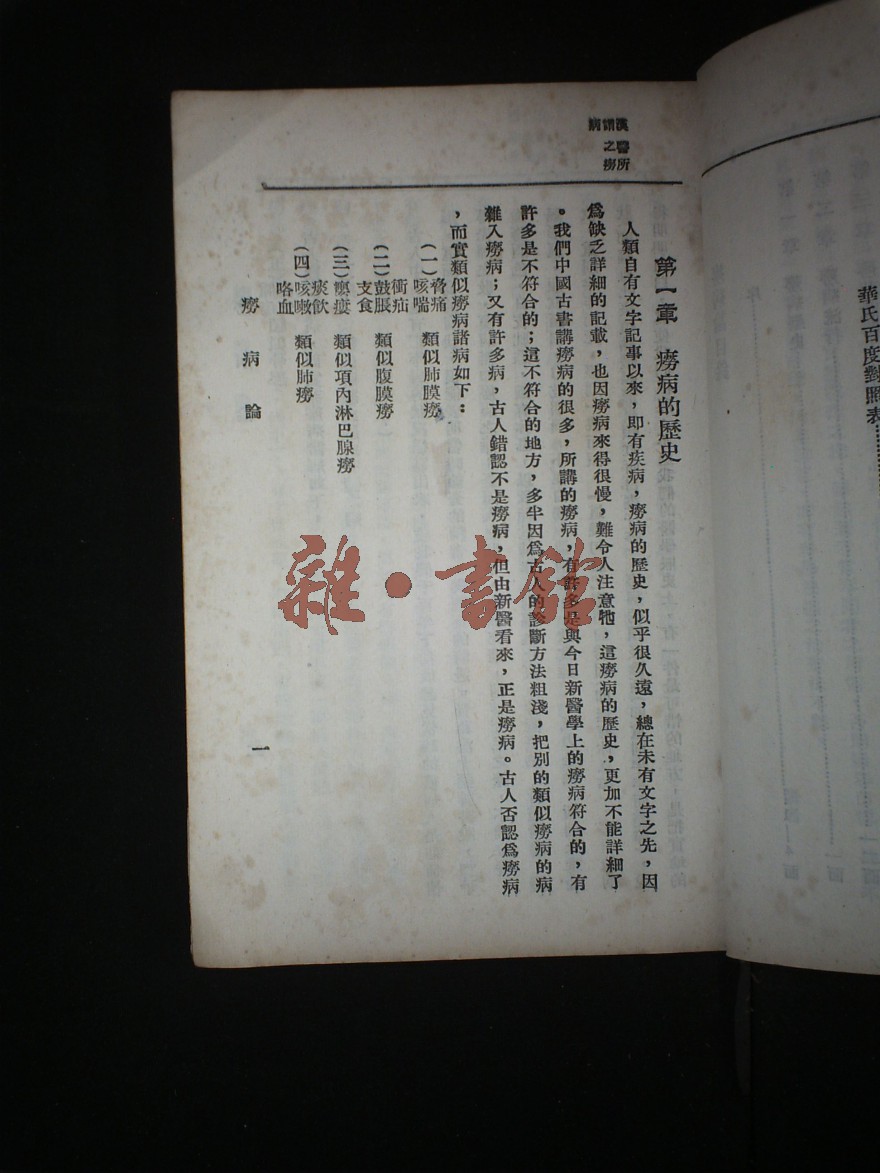 華氏百度對照表
漢醫所
謂之癆
病
第一章 癆病的歷史
人類自有文字記事以來，即有疾病，癆病的歷史，似乎很久遠，總在未有文字之先，因
爲缺乏詳細的記載，也因癆病來得很慢，難令人注意牠，這癆病的歷史，更加不能詳細了
。我們中國古書講癆病的很多，所講的癆病，有許多是與今日新醫學上的癆病符合的，有
許多是不符合的；這不符合的地方，多半因爲古人的診斷方法粗淺，把別的類似癆病的病
雜入癆病；又有許多病，古人錯認不是癆病，但由新醫看來，正是癆病。古人否認爲癆病
，而實類似癆病諸病如下：
（一）脅痛咳喘 類似肺膜癆
（二）衝疝鼓脹支食 類似腹膜癆
（三）瘿痰飲 類似項內淋巴腺癆
（四）咳嗽咯血 類似肺癆
癆病論
一
雜·書館